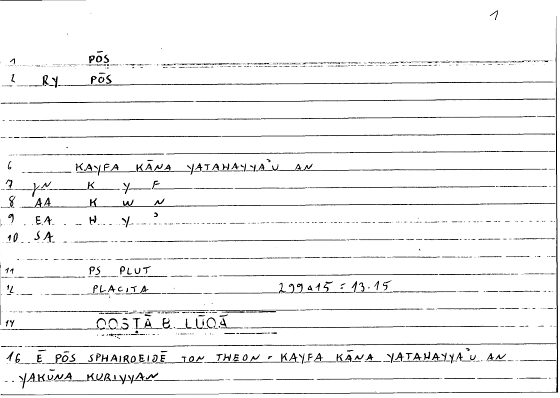 1
1 PŌS
2 RY PŌS
6 KAYFA KĀNA YATAHAYYA'U AN
7 γN K Y F
8 AA K W N
9 EA H Y '
10 SA
11 PS PLUT
12 PLACITA 299a15 = 13.15
14 QOSṬĀ B. LŪQĀ
16 Ē PŌS SPHAIROEIDĒ TON THEON = KAYFA KĀNA YATAHAYYA'U AN
YAKŪNA KURIYYAN